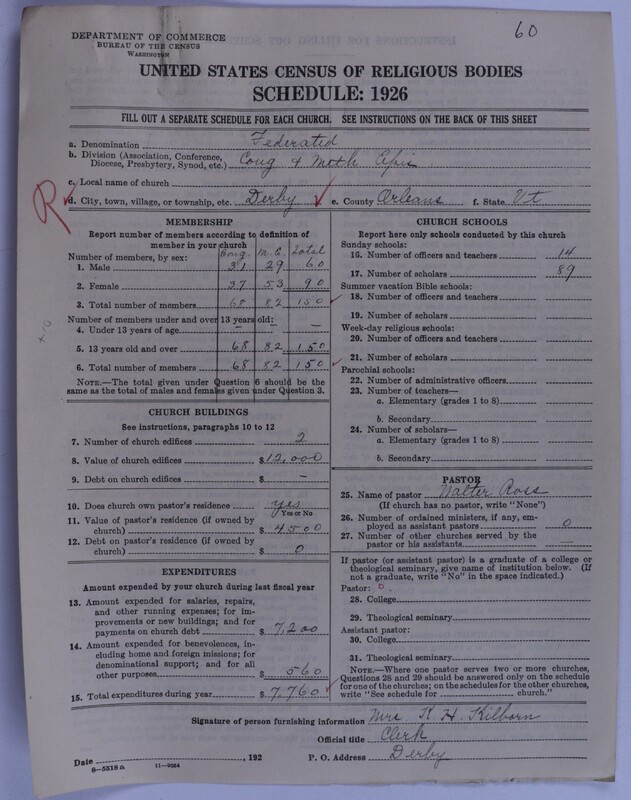 60
DEPARTMENT OF COMMERCE
BUREAU OF THE CENSUS
WASHINGTON
UNITED STATES CENSUS OF RELIGIOUS BODIES
SCHEDULE: 1926
FILL OUT A SEPARATE SCHEDULE FOR EACH CHURCH. SEE INSTRUCTIONS ON THE BACK OF THIS SHEET
a. Denomination Federated
b. Division (Association, Conference, Diocese, Presbytery, Synod, etc.) Cong & Meth Epis
c. Local name of church
R
d. City, town, village, or township, etc. Derby e. County Orleans f. State Vt
MEMBERSHIP
Report number of members according to definition of member in your church
Number of members, by sex: Cong. M.E. Total
1. Male 31 29 60
2. Female 37 53 90
3. Total number of members 68 82 150
Number of members under and over 13 years old:
4. Under 13 years of age — — —
5. 13 years old and over 68 82 150
6. Total number of members 68 82 150
NOTE.—The total given under Question 6 should be the same as the total of males and females given under Question 3.
CHURCH BUILDINGS
See instructions, paragraphs 10 to 12
7. Number of church edifices 2
8. Value of church edifices $12,000
9. Debt on church edifices $ —
10. Does church own pastor's residence yes
Yes or No
11. Value of pastor's residence (if owned by church) $4500
12. Debt on pastor's residence (if owned by church) $ 0
EXPENDITURES
Amount expended by your church during last fiscal year
13. Amount expended for salaries, repairs, and other running expenses; for improvements or new buildings; and for payments on church debt $7,200
14. Amount expended for benevolences, including home and foreign missions; for denominational support; and for all other purposes $560
15. Total expenditures during year $7,760
CHURCH SCHOOLS
Report here only schools conducted by this church
Sunday schools:
16. Number of officers and teachers 14
17. Number of scholars 89
Summer vacation Bible schools:
18. Number of officers and teachers
19. Number of scholars
Week-day religious schools:
20. Number of officers and teachers
21. Number of scholars
Parochial schools:
22. Number of administrative officers
23. Number of teachers—
a. Elementary (grades 1 to 8)
b. Secondary
24. Number of scholars—
a. Elementary (grades 1 to 8)
b. Secondary
PASTOR
25. Name of pastor Walter Ross
(If church has no pastor, write "None")
26. Number of ordained ministers, if any, employed as assistant pastors 0
27. Number of other churches served by the pastor or his assistants —
If pastor (or assistant pastor) is a graduate of a college or theological seminary, give name of institution below. (If not a graduate, write "No" in the space indicated.)
Pastor: 0
28. College
29. Theological seminary
Assistant pastor:
30. College
31. Theological seminary
NOTE.—Where one pastor serves two or more churches, Questions 28 and 29 should be answered only on the schedule for one of the churches; on the schedules for the other churches, write "See schedule for church."
Signature of person furnishing information Mrs. K. H. Kilborn
Official title Clerk
Date , 192 P. O. Address Derby
8-5518a 11-9264